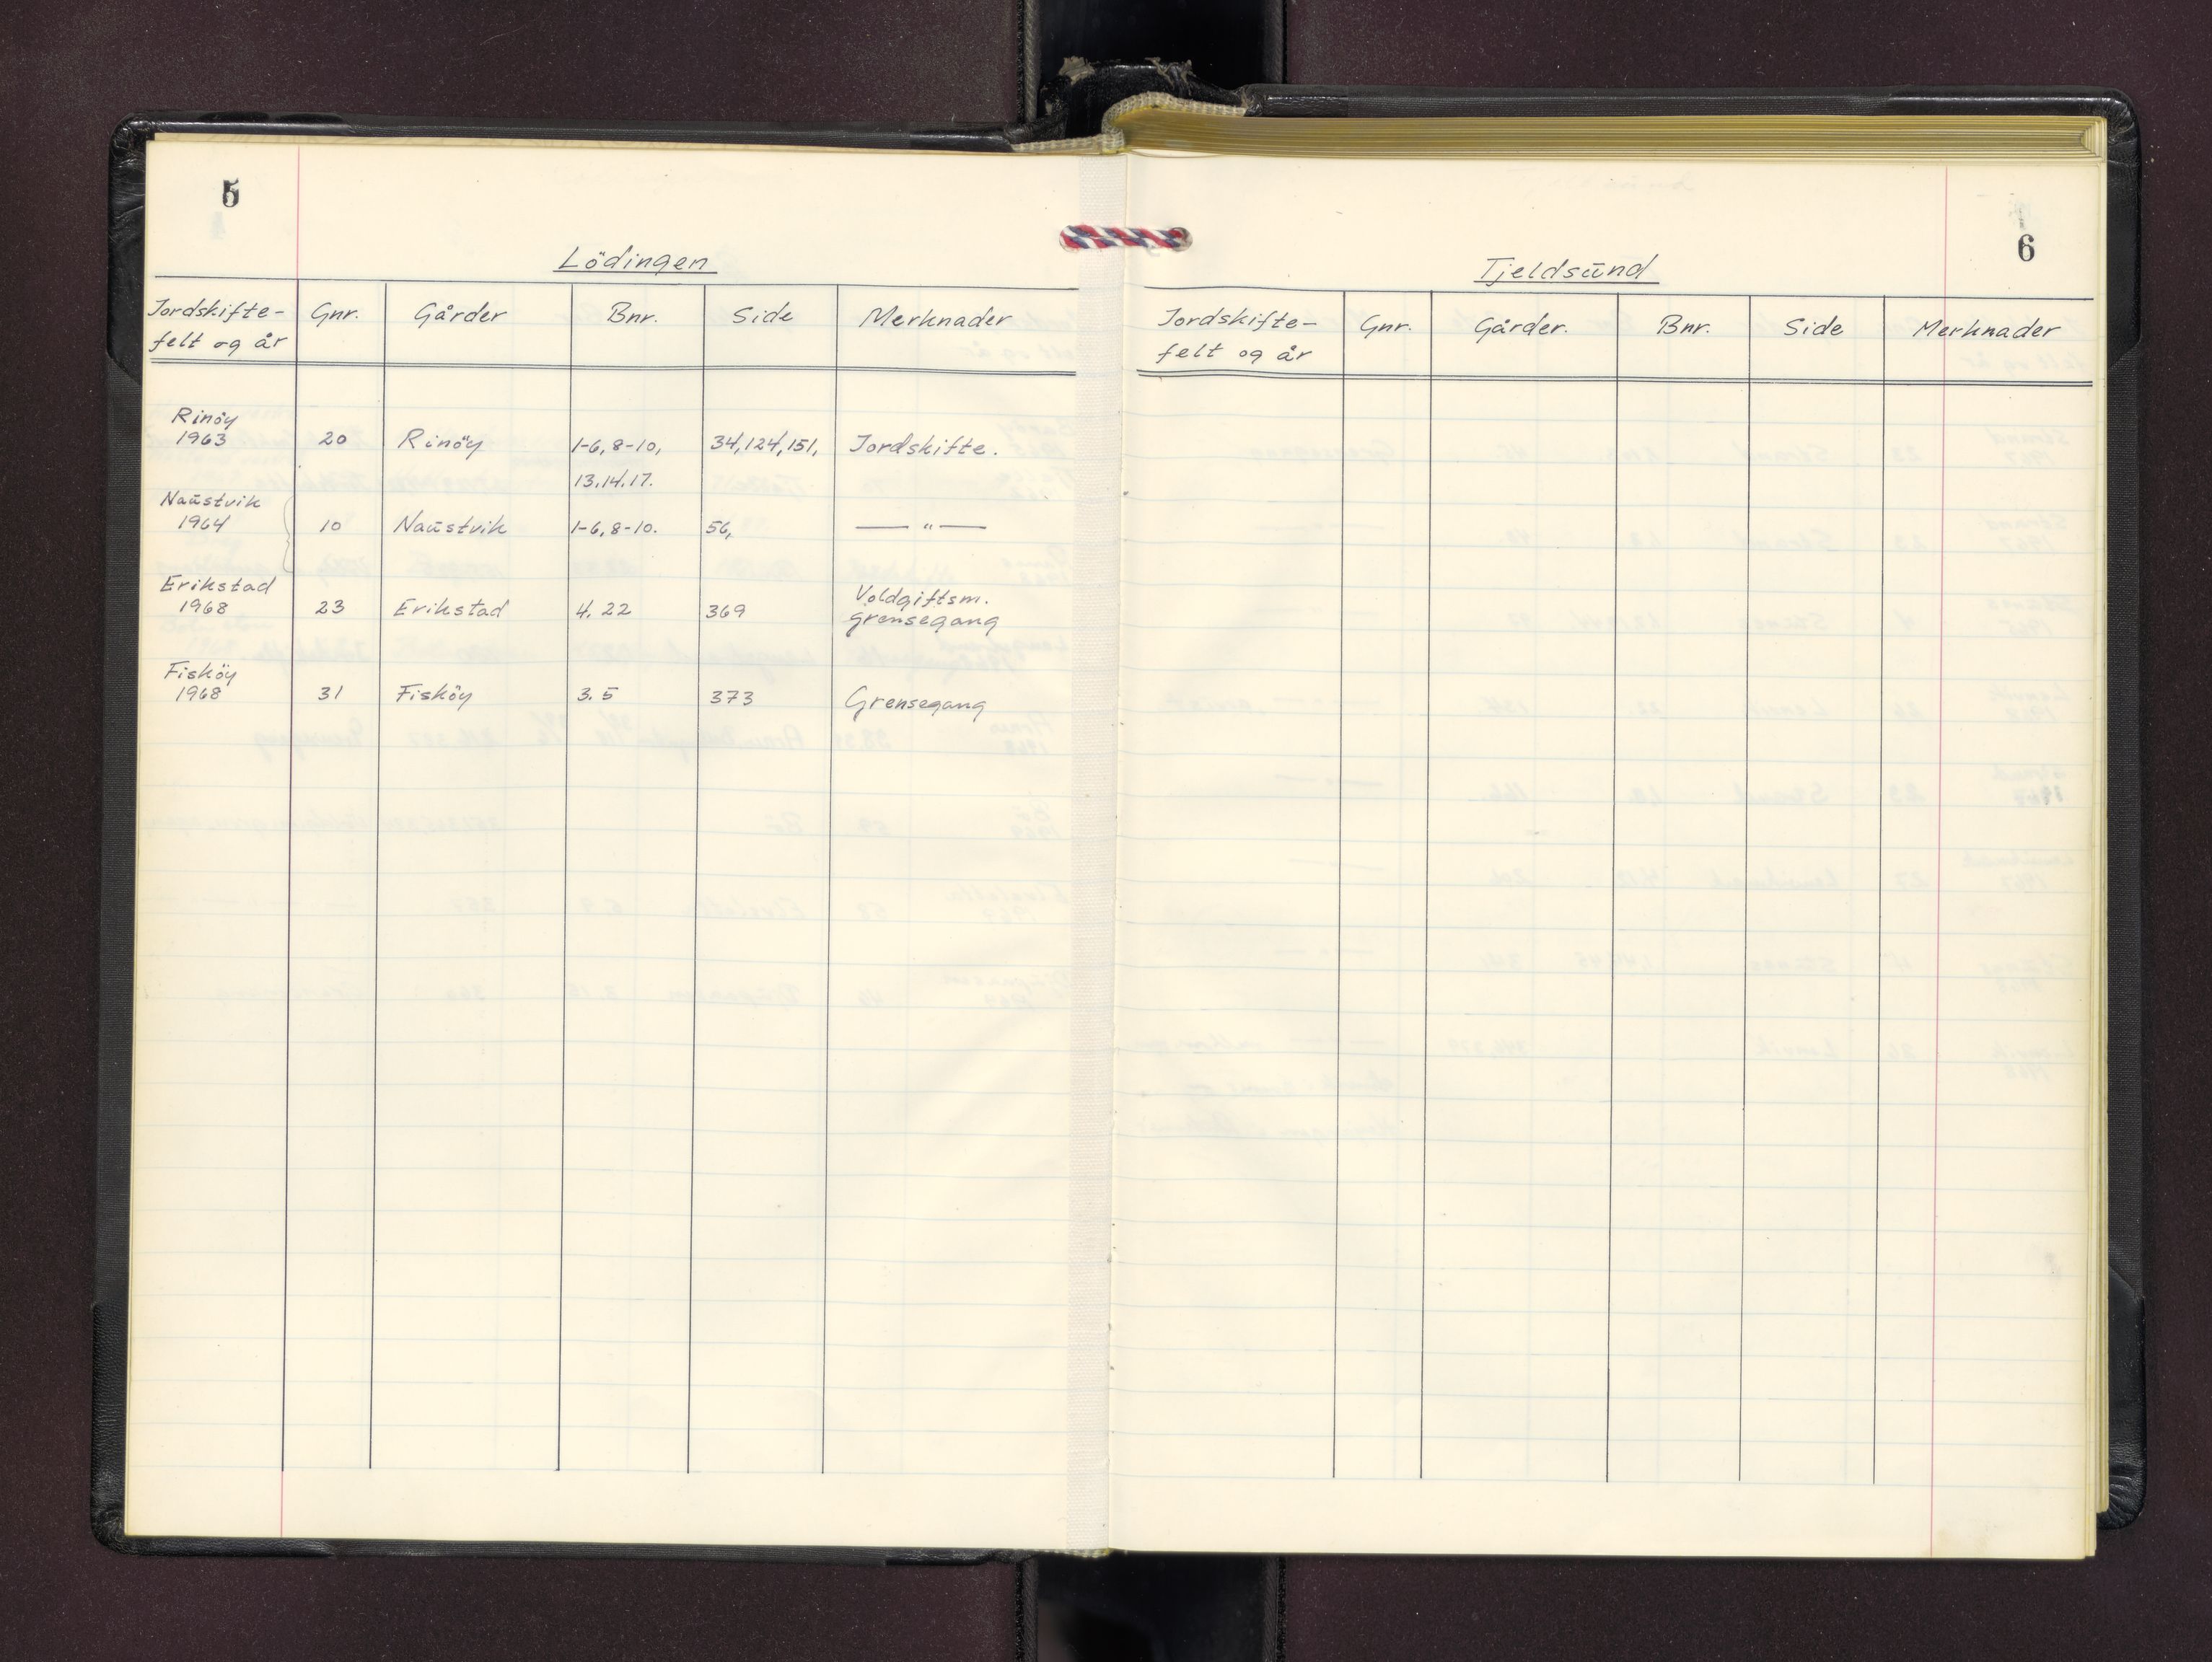 5
Lödingen
Jordskifte-
felt og år
Gnr.
Gårder
Bnr.
Side
Merknader
Rinöy
1963
20
Rinöy
1-6, 8-10,
13.14.17.
34, 124, 151,
Jordskifte.
Naustvik
1964
10
Naustvik
1-6, 8-10.
56,
— " —
Erikstad
1968
23
Erikstad
4. 22
369
Voldgiftsm.
grensegang
Fisköy
1968
31
Fisköy
3. 5
373
Grensegang
6
Tjeldsund
Jordskifte-
felt og år
Gnr.
Gårder.
Bnr.
Side
Merknader